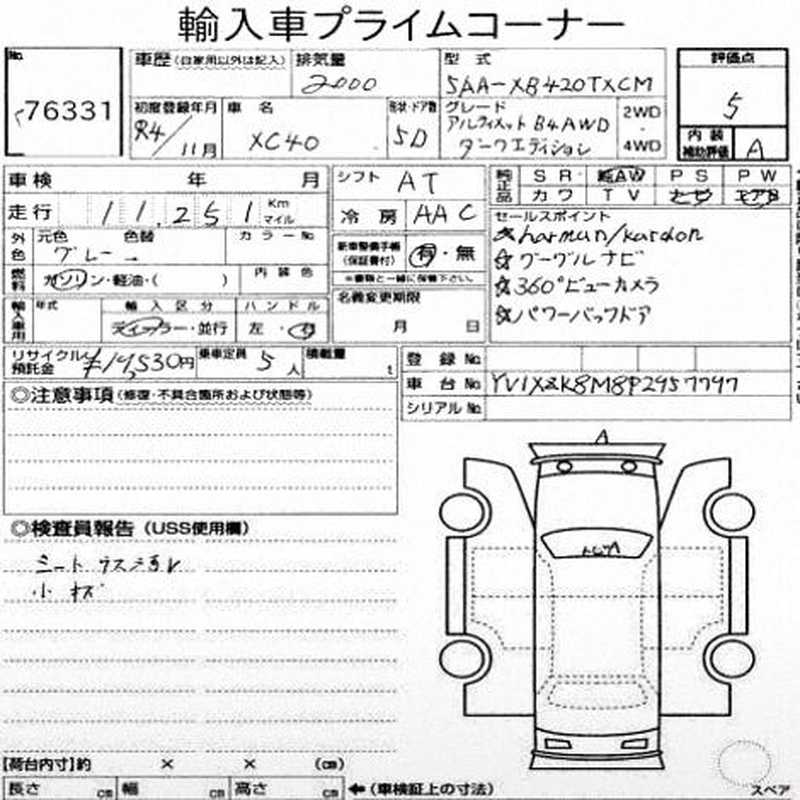 輸入車プライムコーナー
No.
76331
車歴(自家用以外は記入)
排気量
2000
型式
5AA-XB420TXCM
評価点
5
初度登録年月
R4/11月
車名
XC40
形状・ドア数
5D
グレード
アルティメット B4AWD
ダークエディション
2WD
・
4WD
内装
補助評価
A
車検 年 月
シフト
AT
純正品
SR 純AW PS PW
カワ TV ナビ エアB
走行 11,251 Km マイル
冷房 AAC
セールスポイント
☆harman/kardon
☆グーグルナビ
☆360°ビューカメラ
☆パワーバックドア
外色
元色 色替
グレー→
カラーNo
新車整備手帳
(保証書付)
有・無
※書類と一緒に保管下さい。
燃料
ガソリン・軽油・( )
内装色
名義変更期限
月 日
輸入車用
年式
輸入区分
ディーラー・並行
ハンドル
左・右
リサイクル預託金
¥14,530円
乗車定員 5人
積載量 t
登録No.
車台No. YV1XZK8M8P2957797
シリアルNo.
◎注意事項(修復・不具合箇所および状態等)
◎検査員報告(USS使用欄)
シート ウス汚レ
小キズ
【荷台内寸】約 × × (cm)
長さ cm 幅 cm 高さ cm ←(車検証上の寸法)
A
スペア